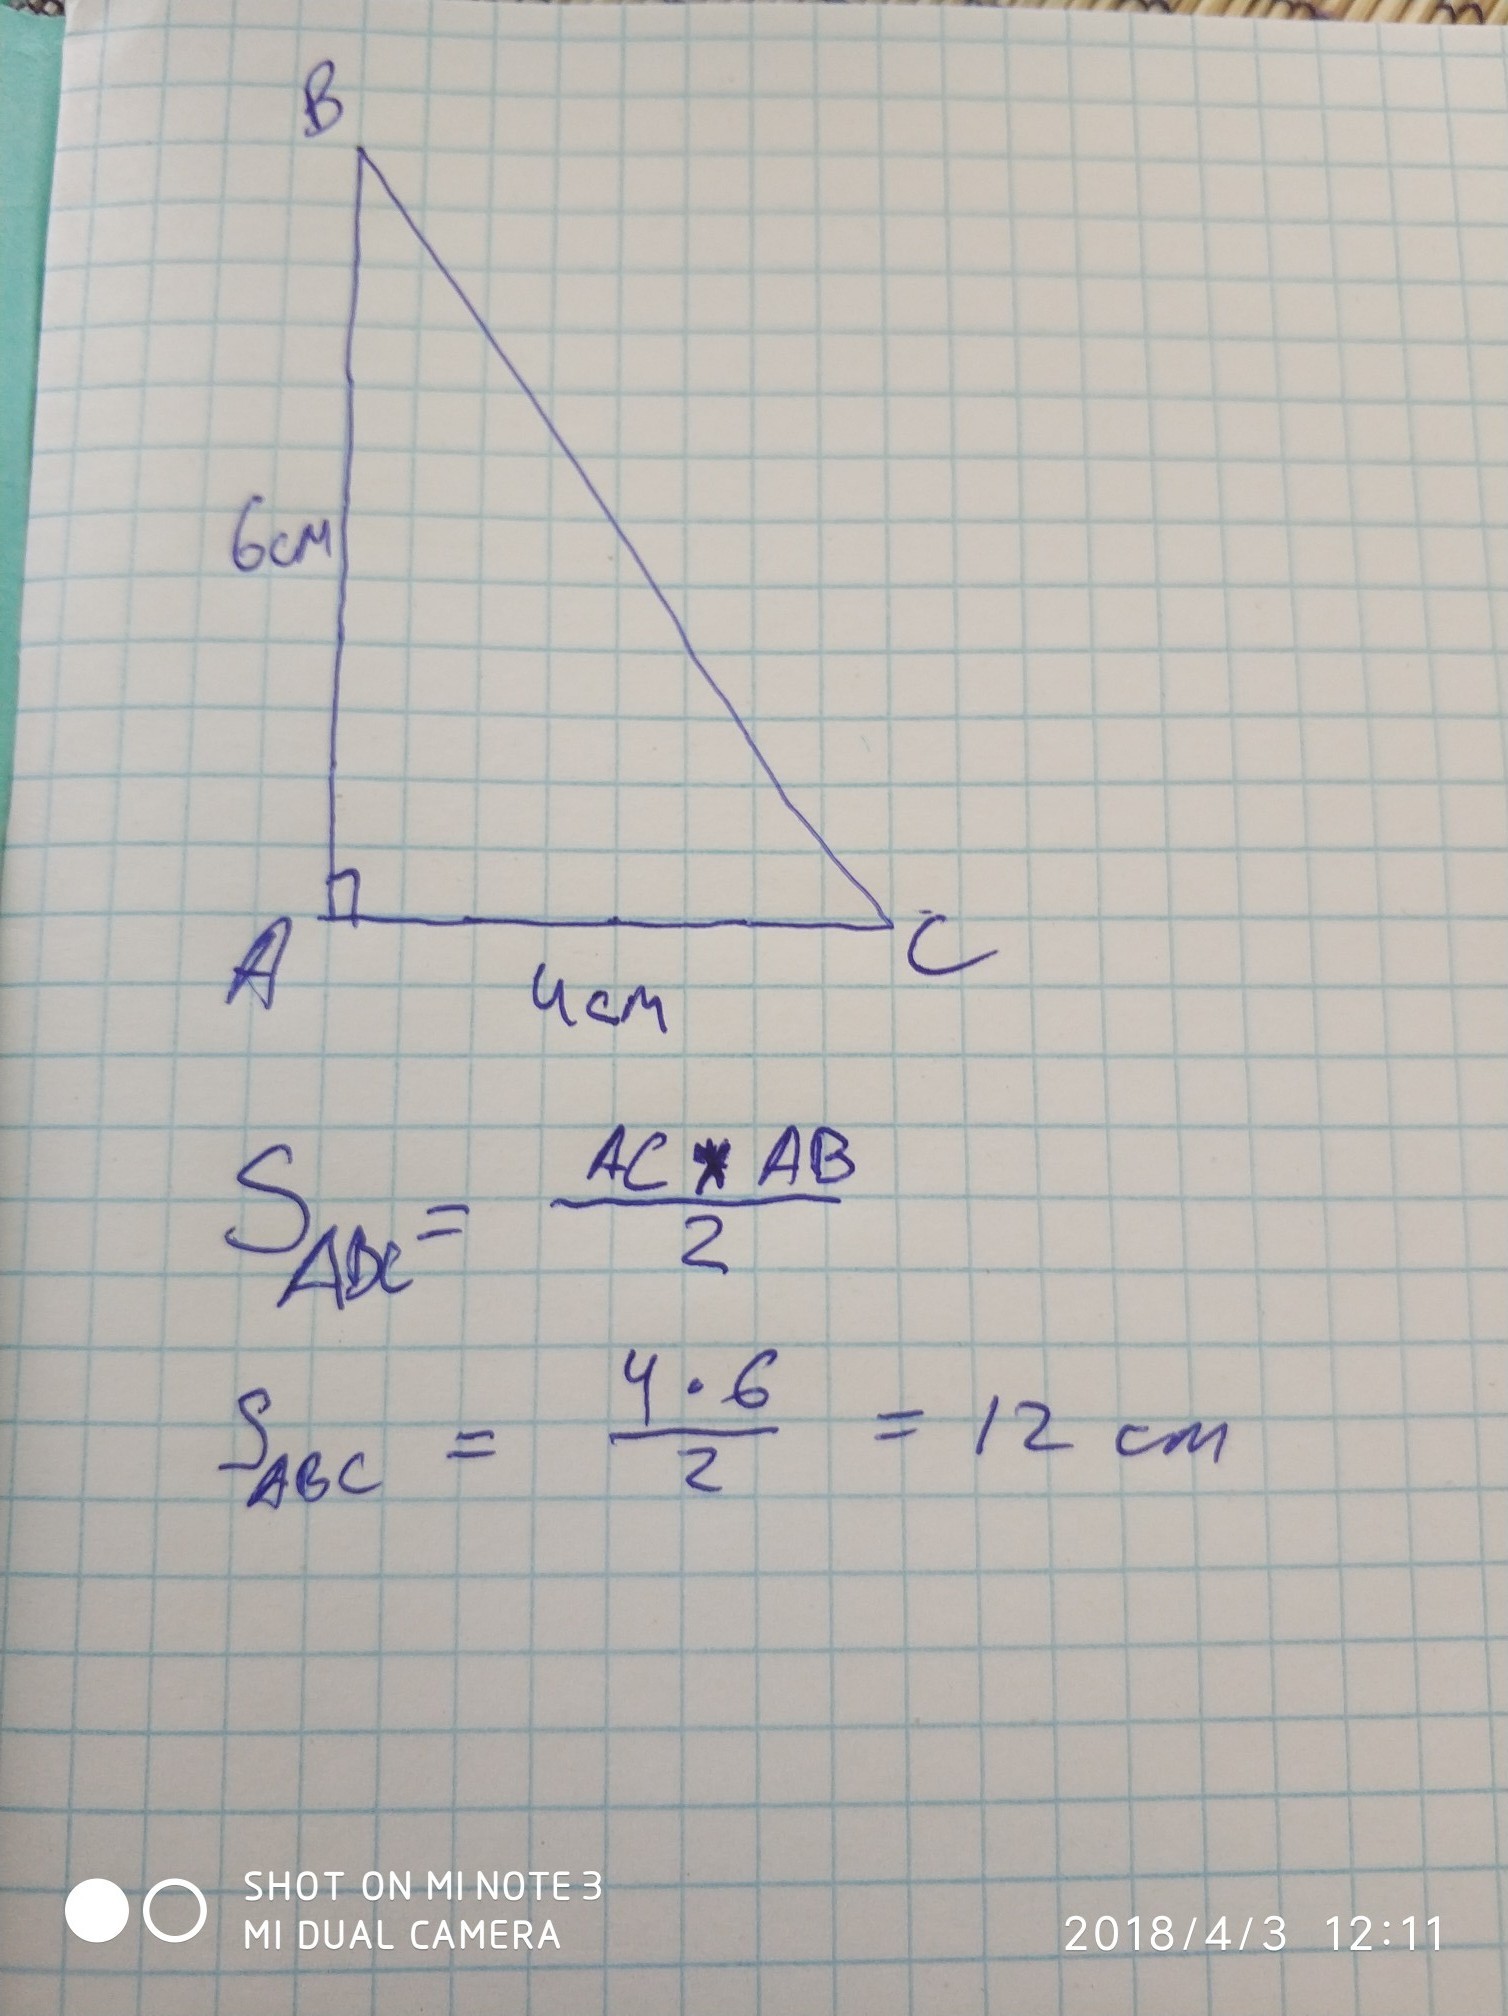 B
6см
A
C
4см
S_ABC = AC * AB / 2
S_ABC = 4 · 6 / 2 = 12 см
SHOT ON MI NOTE 3
MI DUAL CAMERA
2018/4/3 12:11